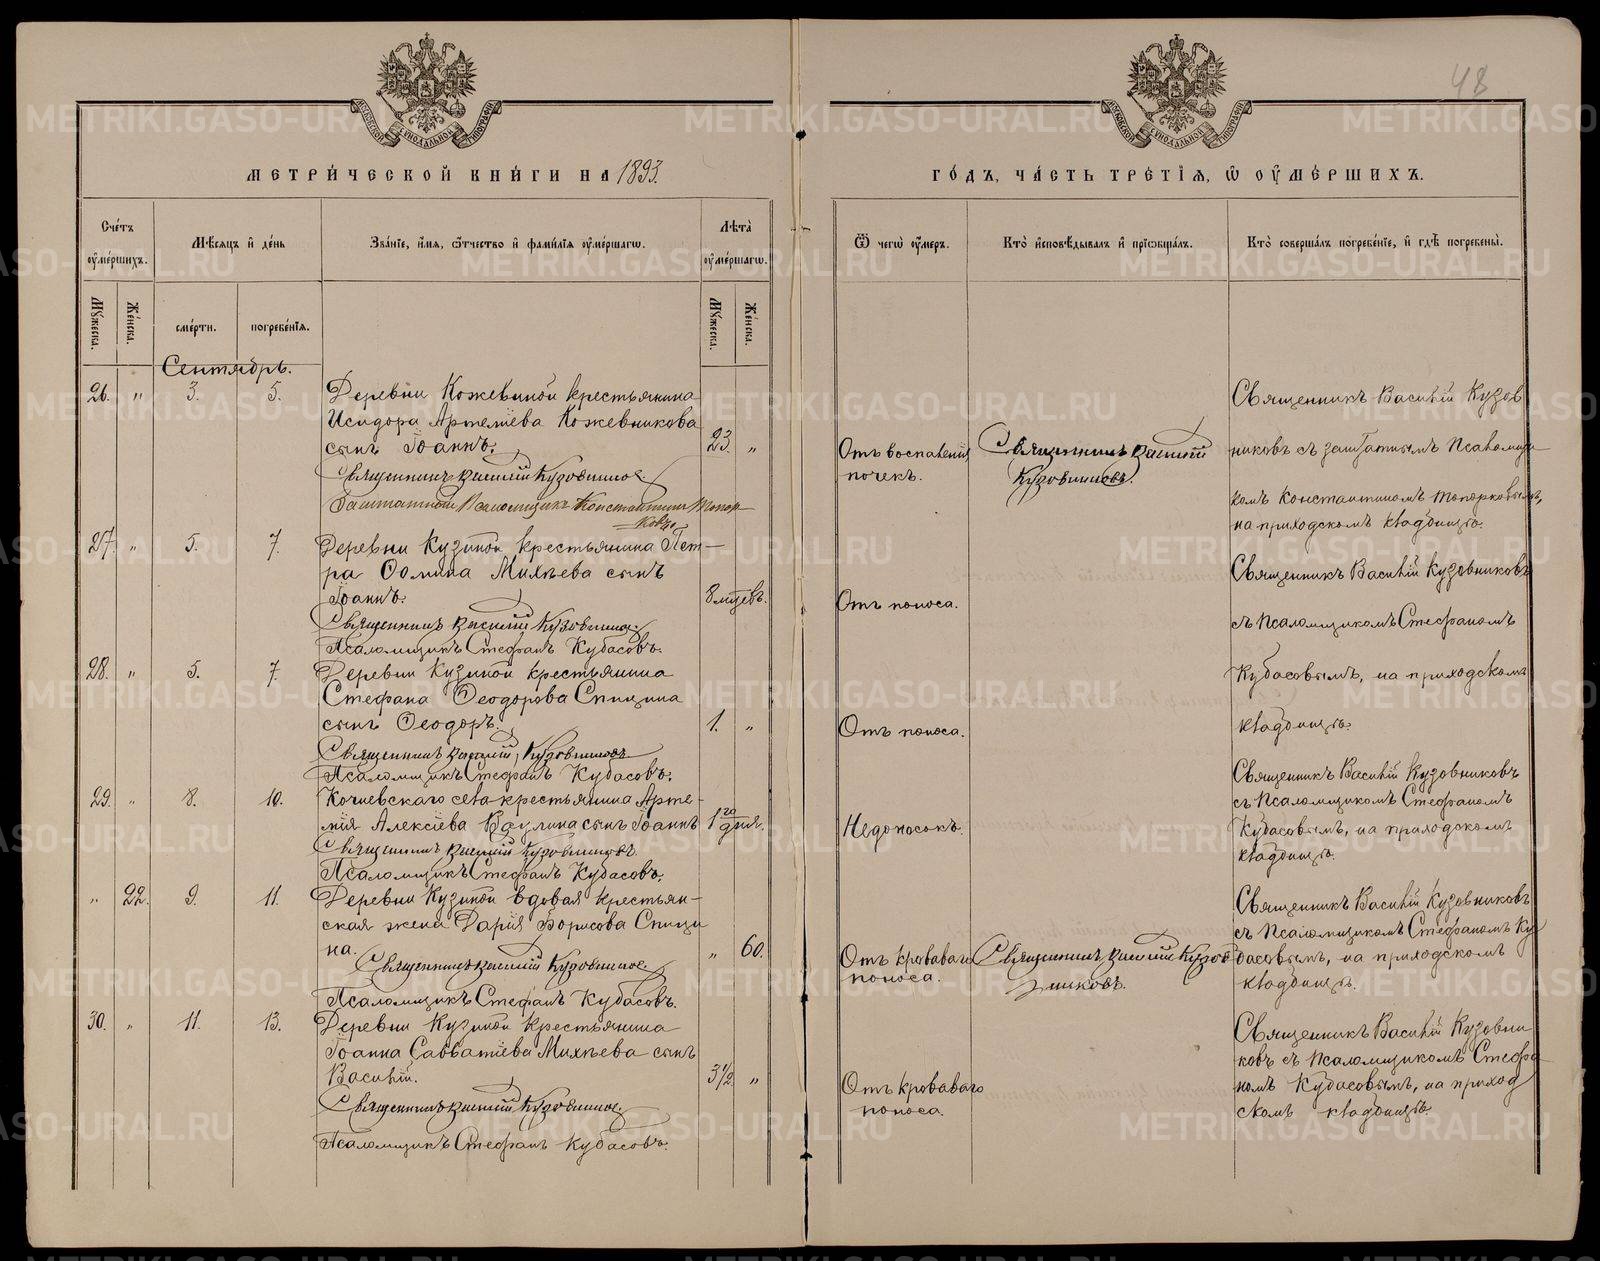 48
МЕТРИ́ЧЕСКОЙ КНИ́ГИ НА 1893.
ГО́ДЪ, ЧА́СТЬ ТРЕ́ТІЯ, Ѿ ОУ҆МЕ́РШИХЪ.
Сче́тъ оу҆ме́ршихъ.
Мѣ́сяцъ и҆ де́нь
Зва́ніе, и҆́мя, ѻ҆́тчество и҆ фами́лія оу҆ме́ршагѡ.
Лѣ́та оу҆ме́ршагѡ.
Ѿ чегѡ̀ оу҆́меръ.
Кто̀ и҆сповѣ́дывалъ и҆ прїѡбща́лъ.
Кто̀ соверша́лъ погребе́ніе, и҆ гдѣ̀ погребены̀.
Мꙋ́жеска.
Же́нска.
сме́рти.
погребе́нія.
Мꙋ́жеска.
Же́нска.
Сентябрь.
26. " 3. 5. Деревни Кожевиной крестьянина
Исидора Артемiева Кожевникова
сынъ Іоаннъ. 23. "
Священникъ Василій Кузовниковъ
Заштатный Псаломщикъ Константинъ Топор
ковъ
Отъ воспаленія
почекъ.
Священникъ Василій
Кузовниковъ.
Священникъ Василій Кузов
никовъ съ заштатнымъ Псаломщи
комъ Константиномъ Топорковымъ,
на приходскомъ кладбищѣ.
27. " 5. 7. Деревни Кузиной крестьянина Пет-
ра Ѳомина Михѣева сынъ
Іоаннъ. 8 мцевъ.
Священникъ Василій Кузовниковъ.
Псаломщикъ Стефанъ Кубасовъ.
Отъ поноса.
Священникъ Василій Кузовниковъ
съ Псаломщикомъ Стефаномъ
Кубасовымъ, на приходскомъ
кладбищѣ.
28. " 5. 7. Деревни Кузиной крестьянина
Стефана Ѳеодорова Спицина
сынъ Ѳеодоръ. 1. "
Священникъ Василій Кузовниковъ
Псаломщикъ Стефанъ Кубасовъ.
Отъ поноса.
29. " 8. 10. Кочневскаго села крестьянина Арте-
мія Алексіева Ваулина сынъ Іоаннъ 1го дня.
Священникъ Василій Кузовниковъ.
Псаломщикъ Стефанъ Кубасовъ.
Недоносокъ.
Священникъ Василій Кузовниковъ
съ Псаломщикомъ Стефаномъ
Кубасовымъ, на приходскомъ
кладбищѣ.
" 22. 9. 11. Деревни Кузиной вдовая крестьян-
ская жена Дарія Борисова Спици
на. " 60.
Священникъ Василій Кузовниковъ.
Псаломщикъ Стефанъ Кубасовъ.
Отъ кроваваго
поноса.
Священникъ Василій Кузов
никовъ.
Священникъ Василій Кузовниковъ
съ Псаломщикомъ Стефаномъ Ку
басовымъ, на приходскомъ
кладбищѣ.
30. " 11. 13. Деревни Кузиной крестьянина
Іоанна Савватіева Михѣева сынъ
Василій. 3½. "
Священникъ Василій Кузовниковъ.
Псаломщикъ Стефанъ Кубасовъ.
Отъ кроваваго
поноса.
Священникъ Василій Кузовни
ковъ съ Псаломщикомъ Стефа
номъ Кубасовымъ, на приход
скомъ кладбищѣ.
METRIKI.GASO-URAL.RU